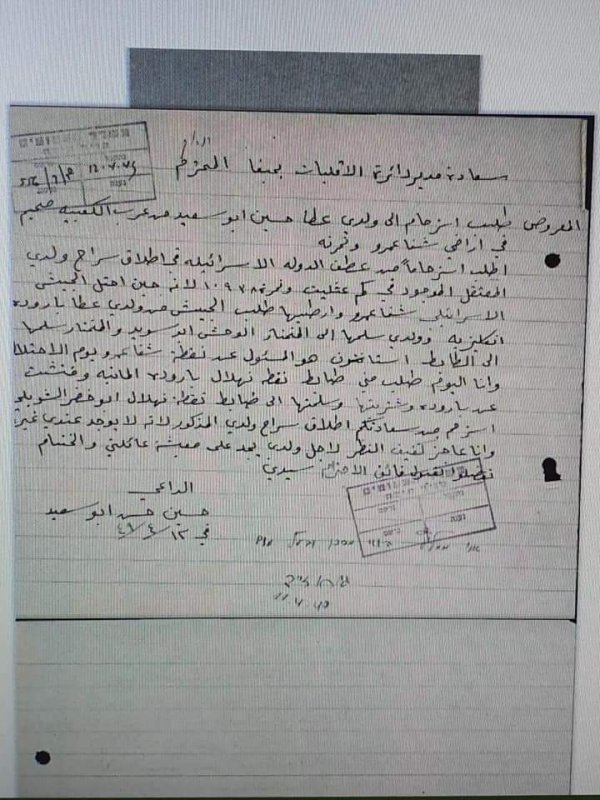 سعادة مدير دائرة الاقليات بحيفا المحترم
المعروض طلب استرحام الى ولدي عطا حسين ابو سعيد من عرب الكعبيه مخيم
في اراضي شفاعمرو ونمرته
اطلب استرحاماً من عطف الدوله الاسرائيليه في اطلاق سراح ولدي
المعتقل الموجود في كمب عتليت ونمرته ١٠٩٧٨ لانه حين احتل الجيش
الاسرائيلي شفاعمرو واراضيها طلب الجيش من ولدي عطا باروده
انكليزيه وولدي سلمها الى المختار الوحش ابو سويد والمختار سلمها
الى الظابط هو المسئول عن نقطة شفاعمرو يوم الاحتلال
وانا اليوم طلب مني ظابط نقطة نهلال باروده المانيه وفتشت
عن باروده وشتريتها وسلمتها الى ظابط نقطة نهلال ابو خضر الشوبلي
استرحم من سعادتكم اطلاق سراح ولدي المذكور لانه لا يوجد عندي غيره
وانا عاجز كفيف النظر لاجل ولدي يجد على معيشة عائلتي والختام
تفضلوا بقبول فائق الاحترام سيدي
الداعي
حسين حسن ابو سعيد
في ١٣/٤/٤٩